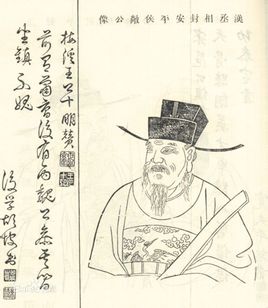 漢丞相封安平侯敞公像
梅溪王十朋贊
前有蕭曹後有丙魏公參其間
坐鎮不媿
後學胡書